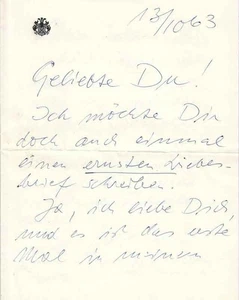 13/10 63
Geliebte Du!
Ich möchte Dir
doch auch einmal
einen ernsten Liebes-
brief schreiben.
Ja, ich liebe Dich,
und es ist das erste
Mal in meinem